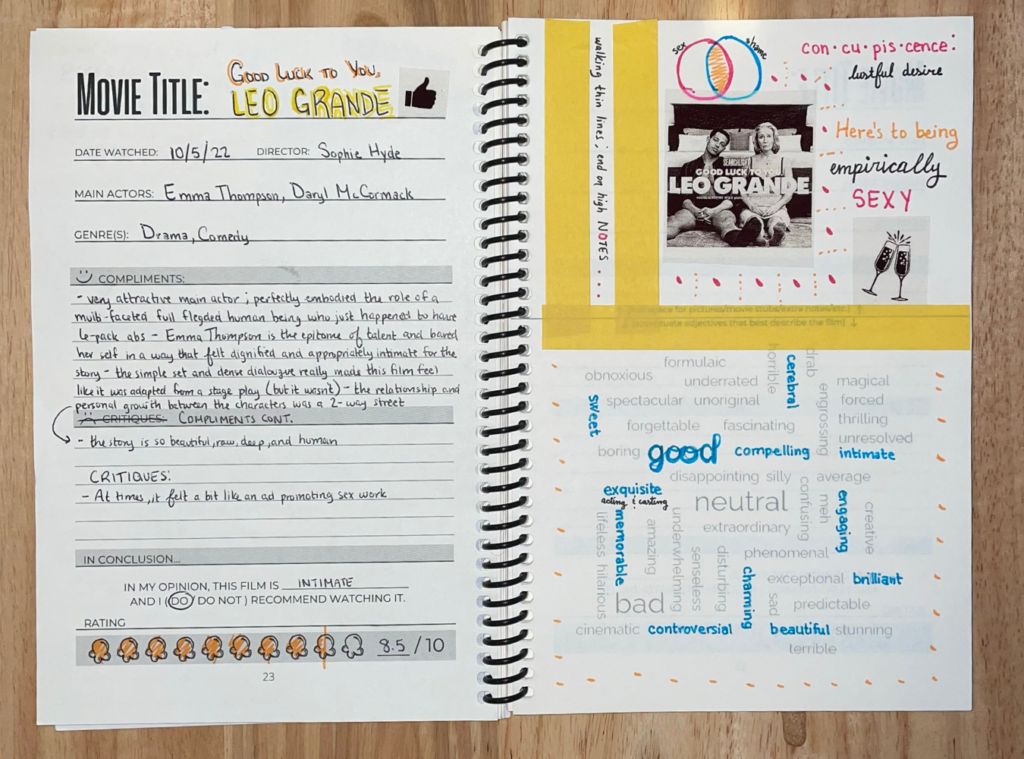 MOVIE TITLE: GOOD LUCK TO YOU,
LEO GRANDE
DATE WATCHED: 10/5/22 DIRECTOR: Sophie Hyde
MAIN ACTORS: Emma Thompson, Daryl McCormack
GENRE(S): Drama, Comedy
COMPLIMENTS:
- very attractive main actor; perfectly embodied the role of a
multi-faceted full flegded human being who just happened to have
6-pack abs - Emma Thompson is the epitome of talent and bared
her self in a way that felt dignified and appropriately intimate for the
story - the simple set and dense dialougue really made this film feel
like it was adapted from a stage play (but it wasn't) - the relationship and
personal growth between the characters was a 2-way street
CRITIQUES: COMPLIMENTS CONT.
- the story is so beautiful, raw, deep, and human
CRITIQUES:
- At times, it felt a bit like an ad promoting sex work
IN CONCLUSION...
IN MY OPINION, THIS FILM IS INTIMATE
AND I (DO/ DO NOT ) RECOMMEND WATCHING IT.
RATING
8.5 / 10
23
walking thin lines; end on high NOTES...
sex shame
SEARCHLIGHT
GOOD LUCK TO YOU
LEO GRANDE
con·cu·pis·cence:
lustful desire
Here's to being
empirically
SEXY
space for pictures/movie stubs/extra notes/etc.)
adjectives that best describe the film)
formulaic
obnoxious underrated
horrible
cerebral
drab
engrossing
magical
spectacular unoriginal
forced
sweet
thrilling
forgettable fascinating
unresolved
boring good compelling intimate
disappointing silly average
exquisite
acting & casting
neutral
confusing
meh
engaging
creative
extraordinary
lifeless
memorable
amazing
underwhelming
hilarious
senseless
disturbing
phenomenal
charming
exceptional brilliant
bad
sad
predictable
cinematic controversial beautiful stunning
terrible